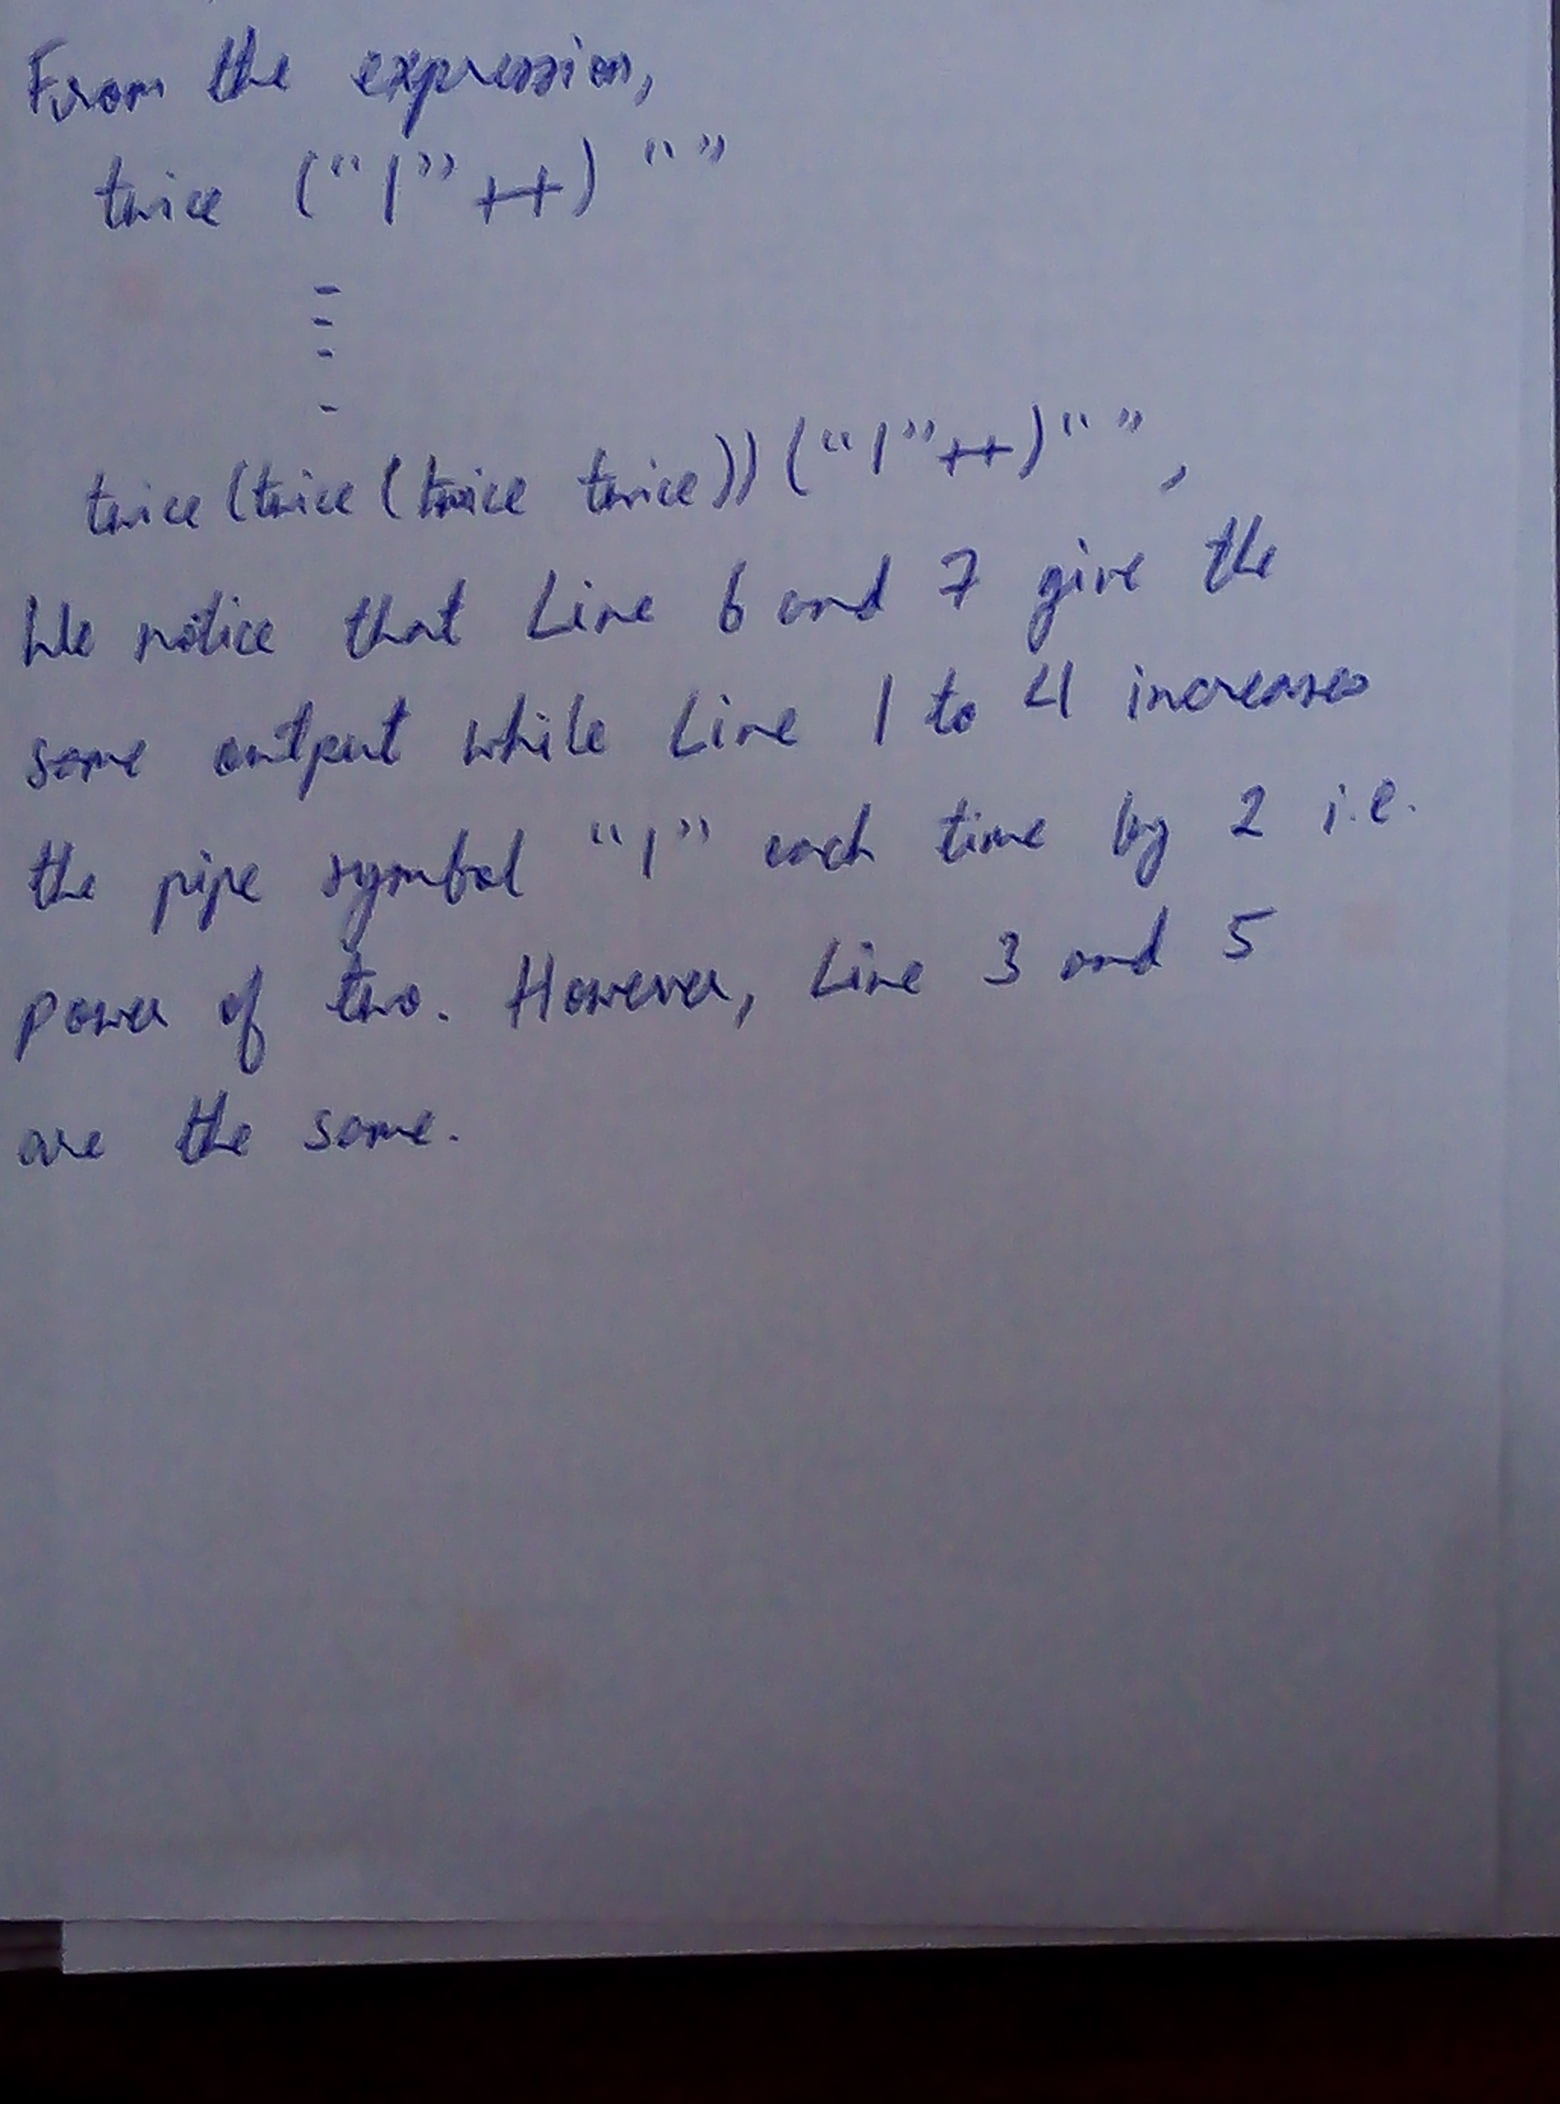 From the expression,
twice ("|"++) " "
twice (twice (twice twice)) ("|"++) " ",
We notice that Line 6 and 7 give the
same output while Line 1 to 4 increases
the pipe symbol "|" each time by 2 i.e.
power of two. However, Line 3 and 5
are the same.